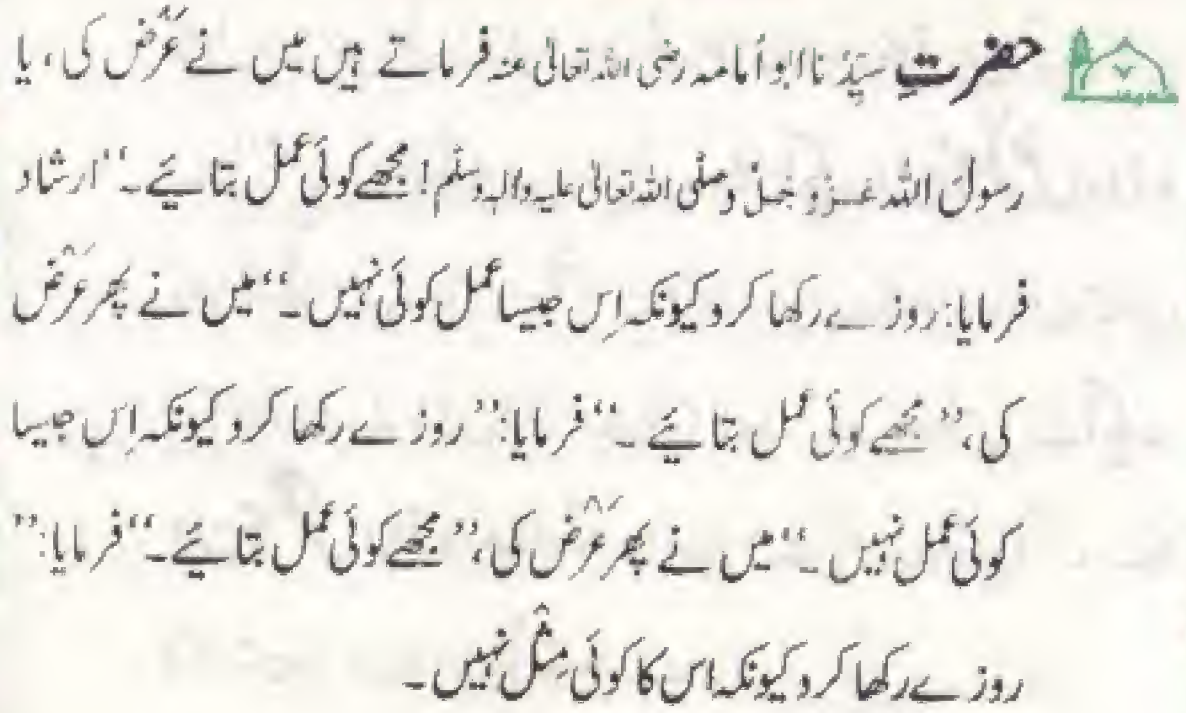 حضرتِ سَیِّدُ نا ابو اُمامہ رضی اللہ تعالیٰ عنہ فرماتے ہیں میں نے عَرْض کی، یا
رسولَ اللہ عَـزَّوَجَلَّ وصلَّی اللہ تعالیٰ علیہ واٰلہٖ وسلَّم! مجھے کوئی عمل بتائیے۔‘‘ ارشاد
فرمایا: روزے رکھا کرو کیونکہ اِس جیسا عمل کوئی نہیں۔‘‘ میں نے پھر عَرْض
کی، ’’مجھے کوئی عمل بتائیے۔‘‘ فرمایا: ’’روزے رکھا کرو کیونکہ اِس جیسا
کوئی عمل نہیں۔‘‘ میں نے پھر عَرْض کی، ’’مجھے کوئی عمل بتائیے۔‘‘ فرمایا: ’’
روزے رکھا کرو کیونکہ اس کا کوئی مِثْل نہیں۔